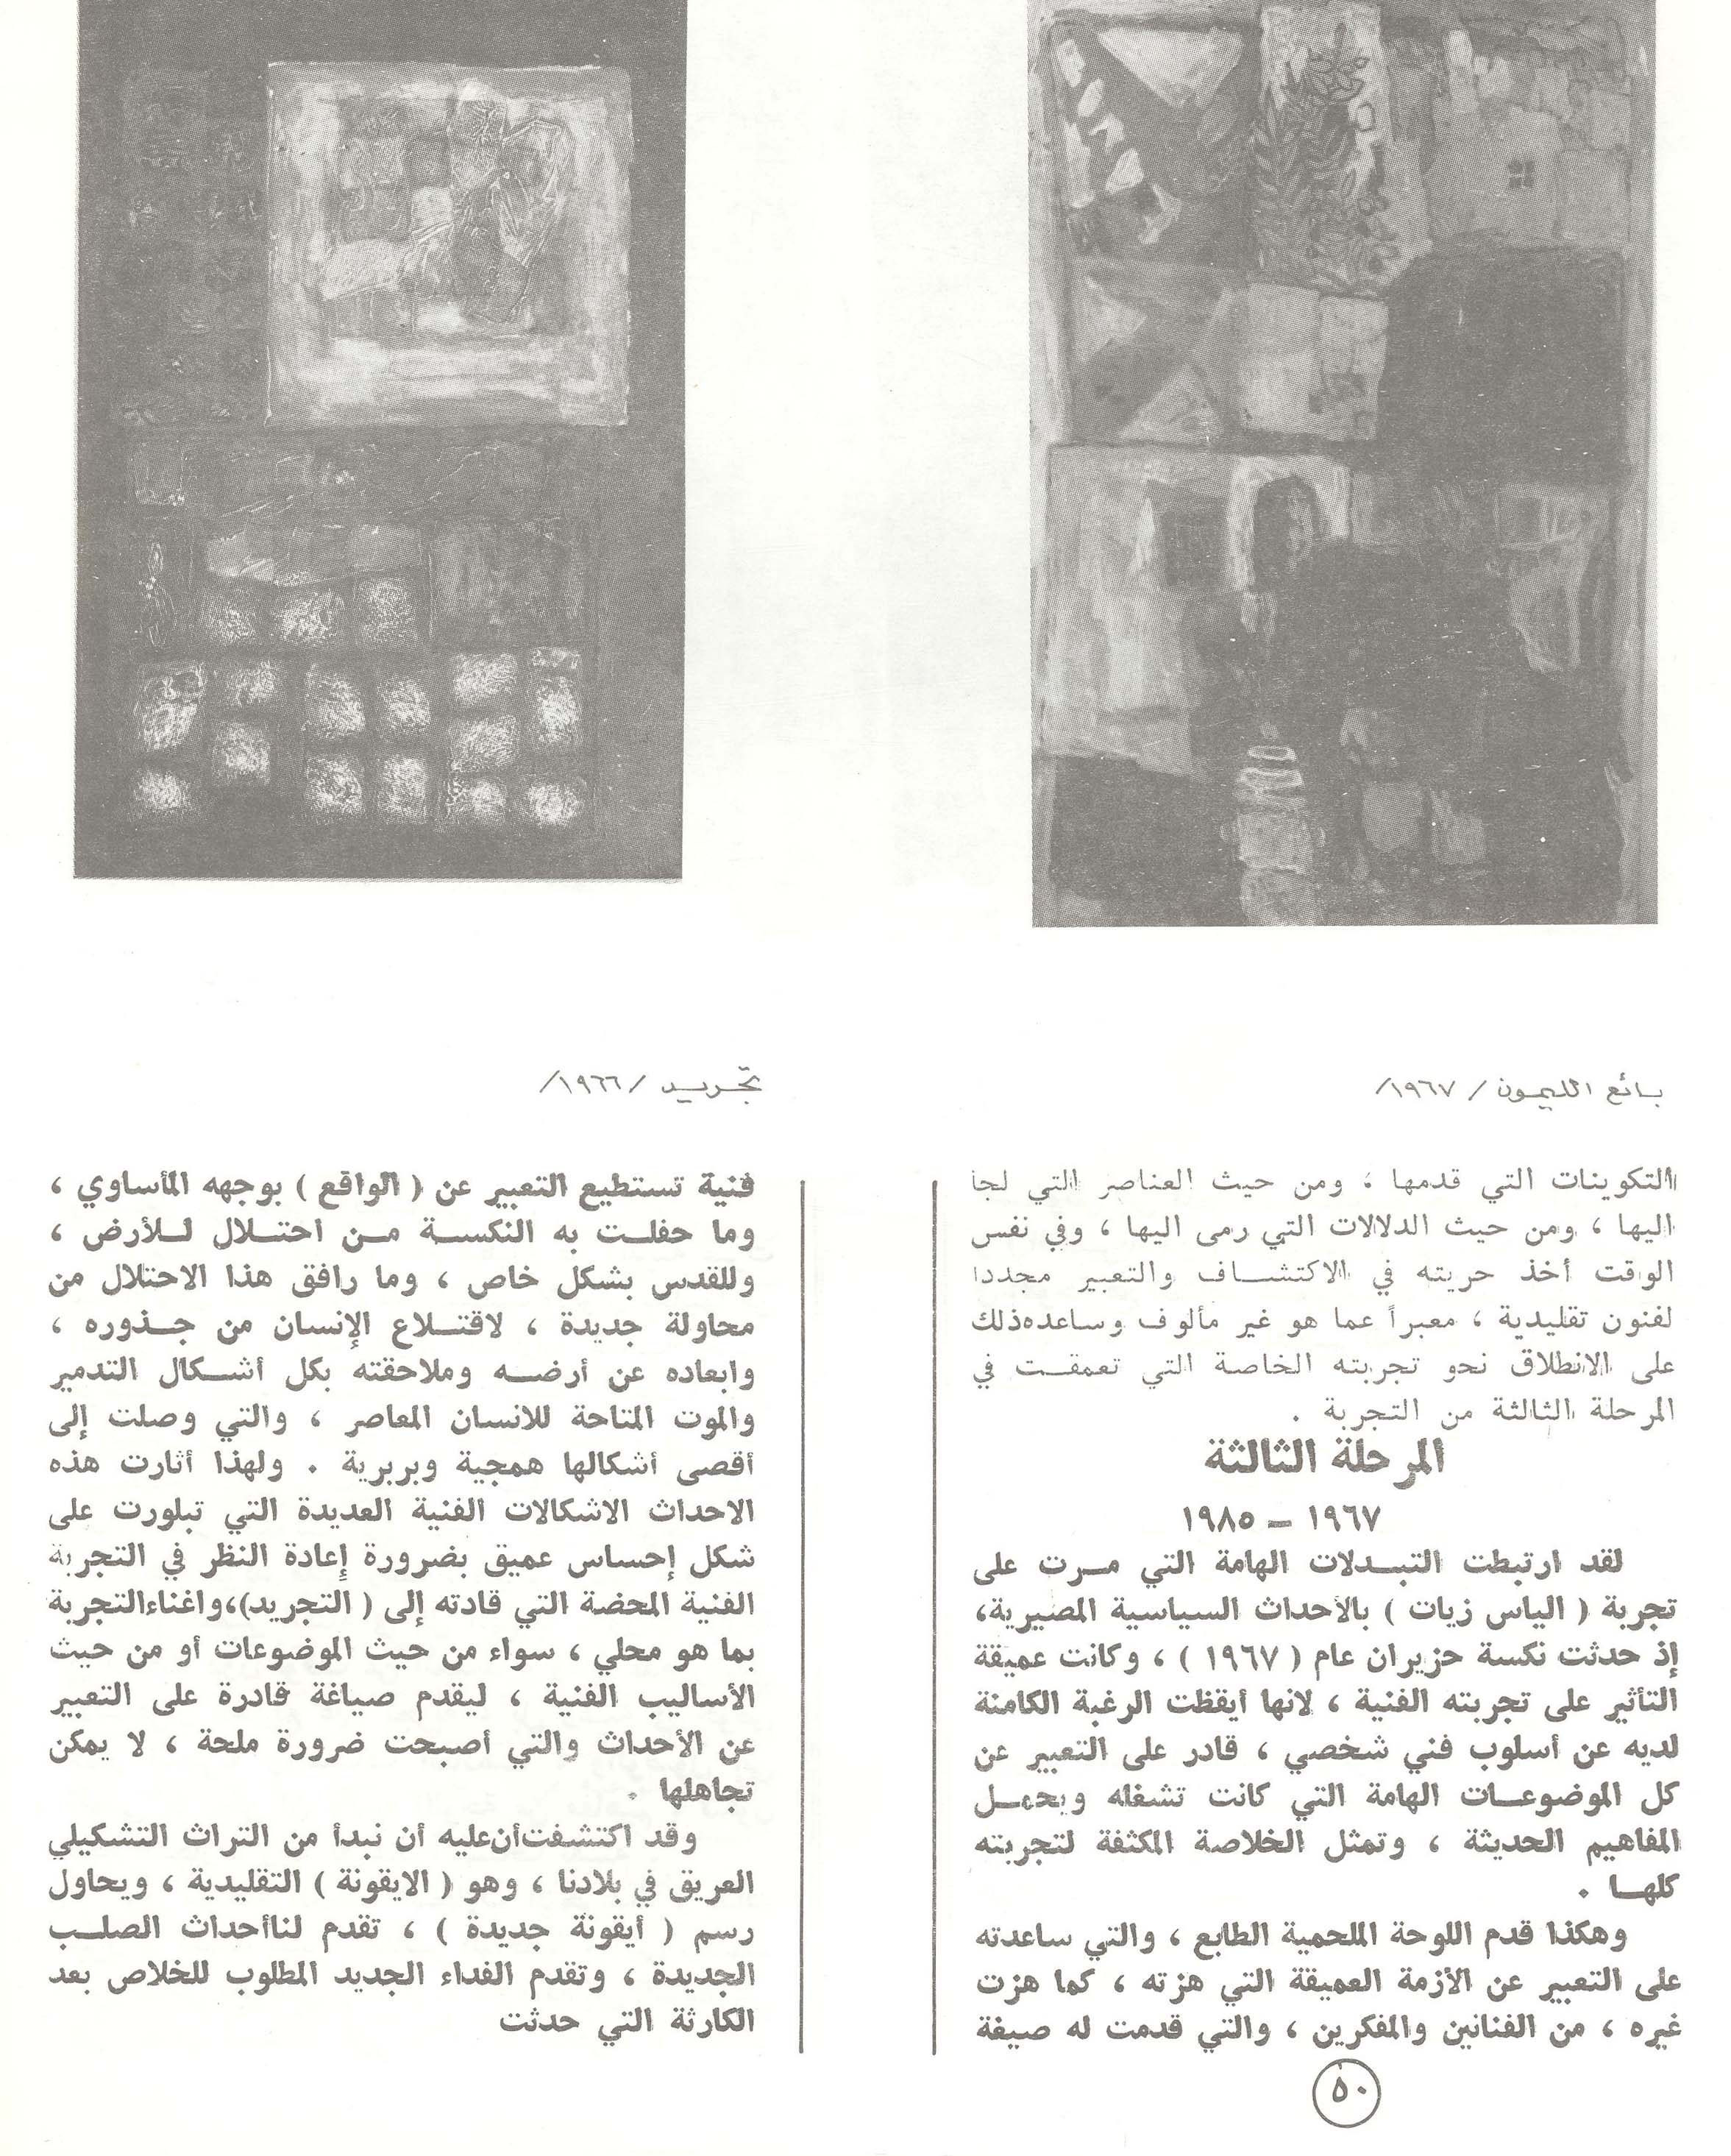 بائع الليمون / ١٩٦٧/
تجريد /١٩٦٦/
التكوينات التي قدمها ، ومن حيث العناصر التي لجا
اليها ، ومن حيث الدلالات التي رمى اليها ، وفي نفس
الوقت أخذ حريته في الاكتشاف والتعبير مجددا
لفنون تقليدية ، معبراً عما هو غير مألوف وساعده ذلك
على الانطلاق نحو تجربته الخاصة التي تعمقت في
المرحلة الثالثة من التجربة .
المرحلة الثالثة
١٩٦٧ – ١٩٨٥
لقد ارتبطت التبدلات الهامة التي مرت على
تجربة ( الياس زيات ) بالأحداث السياسية المصيرية،
إذ حدثت نكسة حزيران عام ( ١٩٦٧ ) ، وكانت عميقة
التأثير على تجربته الفنية ، لانها أيقظت الرغبة الكامنة
لديه عن أسلوب فني شخصي ، قادر على التعبير عن
كل الموضوعات الهامة التي كانت تشغله ويحمل
المفاهيم الحديثة ، وتمثل الخلاصة المكثفة لتجربته
كلها .
وهكذا قدم اللوحة الملحمية الطابع ، والتي ساعدته
على التعبير عن الأزمة العميقة التي هزته ، كما هزت
غيره ، من الفنانين والمفكرين ، والتي قدمت له صيغة
فنية تستطيع التعبير عن ( الواقع ) بوجهه المأساوي ،
وما حفلت به النكسة من احتلال للأرض ،
وللقدس بشكل خاص ، وما رافق هذا الاحتلال من
محاولة جديدة ، لاقتلاع الإنسان من جذوره ،
وابعاده عن أرضه وملاحقته بكل أشكال التدمير
والموت المتاحة للانسان المعاصر ، والتي وصلت إلى
أقصى أشكالها همجية وبربرية . ولهذا أثارت هذه
الاحداث الاشكالات الفنية العديدة التي تبلورت على
شكل إحساس عميق بضرورة إعادة النظر في التجربة
الفنية المحضة التي قادته إلى ( التجريد)،واغناءالتجربة
بما هو محلي ، سواء من حيث الموضوعات أو من حيث
الأساليب الفنية ، ليقدم صياغة قادرة على التعبير
عن الأحداث والتي أصبحت ضرورة ملحة ، لا يمكن
تجاهلها .
وقد اكتشفت أن عليه أن نبدأ من التراث التشكيلي
العريق في بلادنا ، وهو ( الايقونة ) التقليدية ، ويحاول
رسم ( أيقونة جديدة ) ، تقدم لنا أحداث الصلب
الجديدة ، وتقدم الفداء الجديد المطلوب للخلاص بعد
الكارثة التي حدثت
٥٠